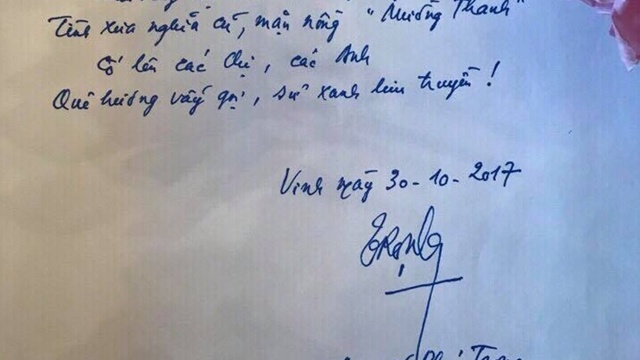 Tình xưa nghĩa cũ, mặn nồng "Mường Thanh"
Cố lên các Chị, các Anh
Quê hương vẫy gọi, sử xanh lưu truyền!
Vinh ngày 30-10-2017
TRỌNG